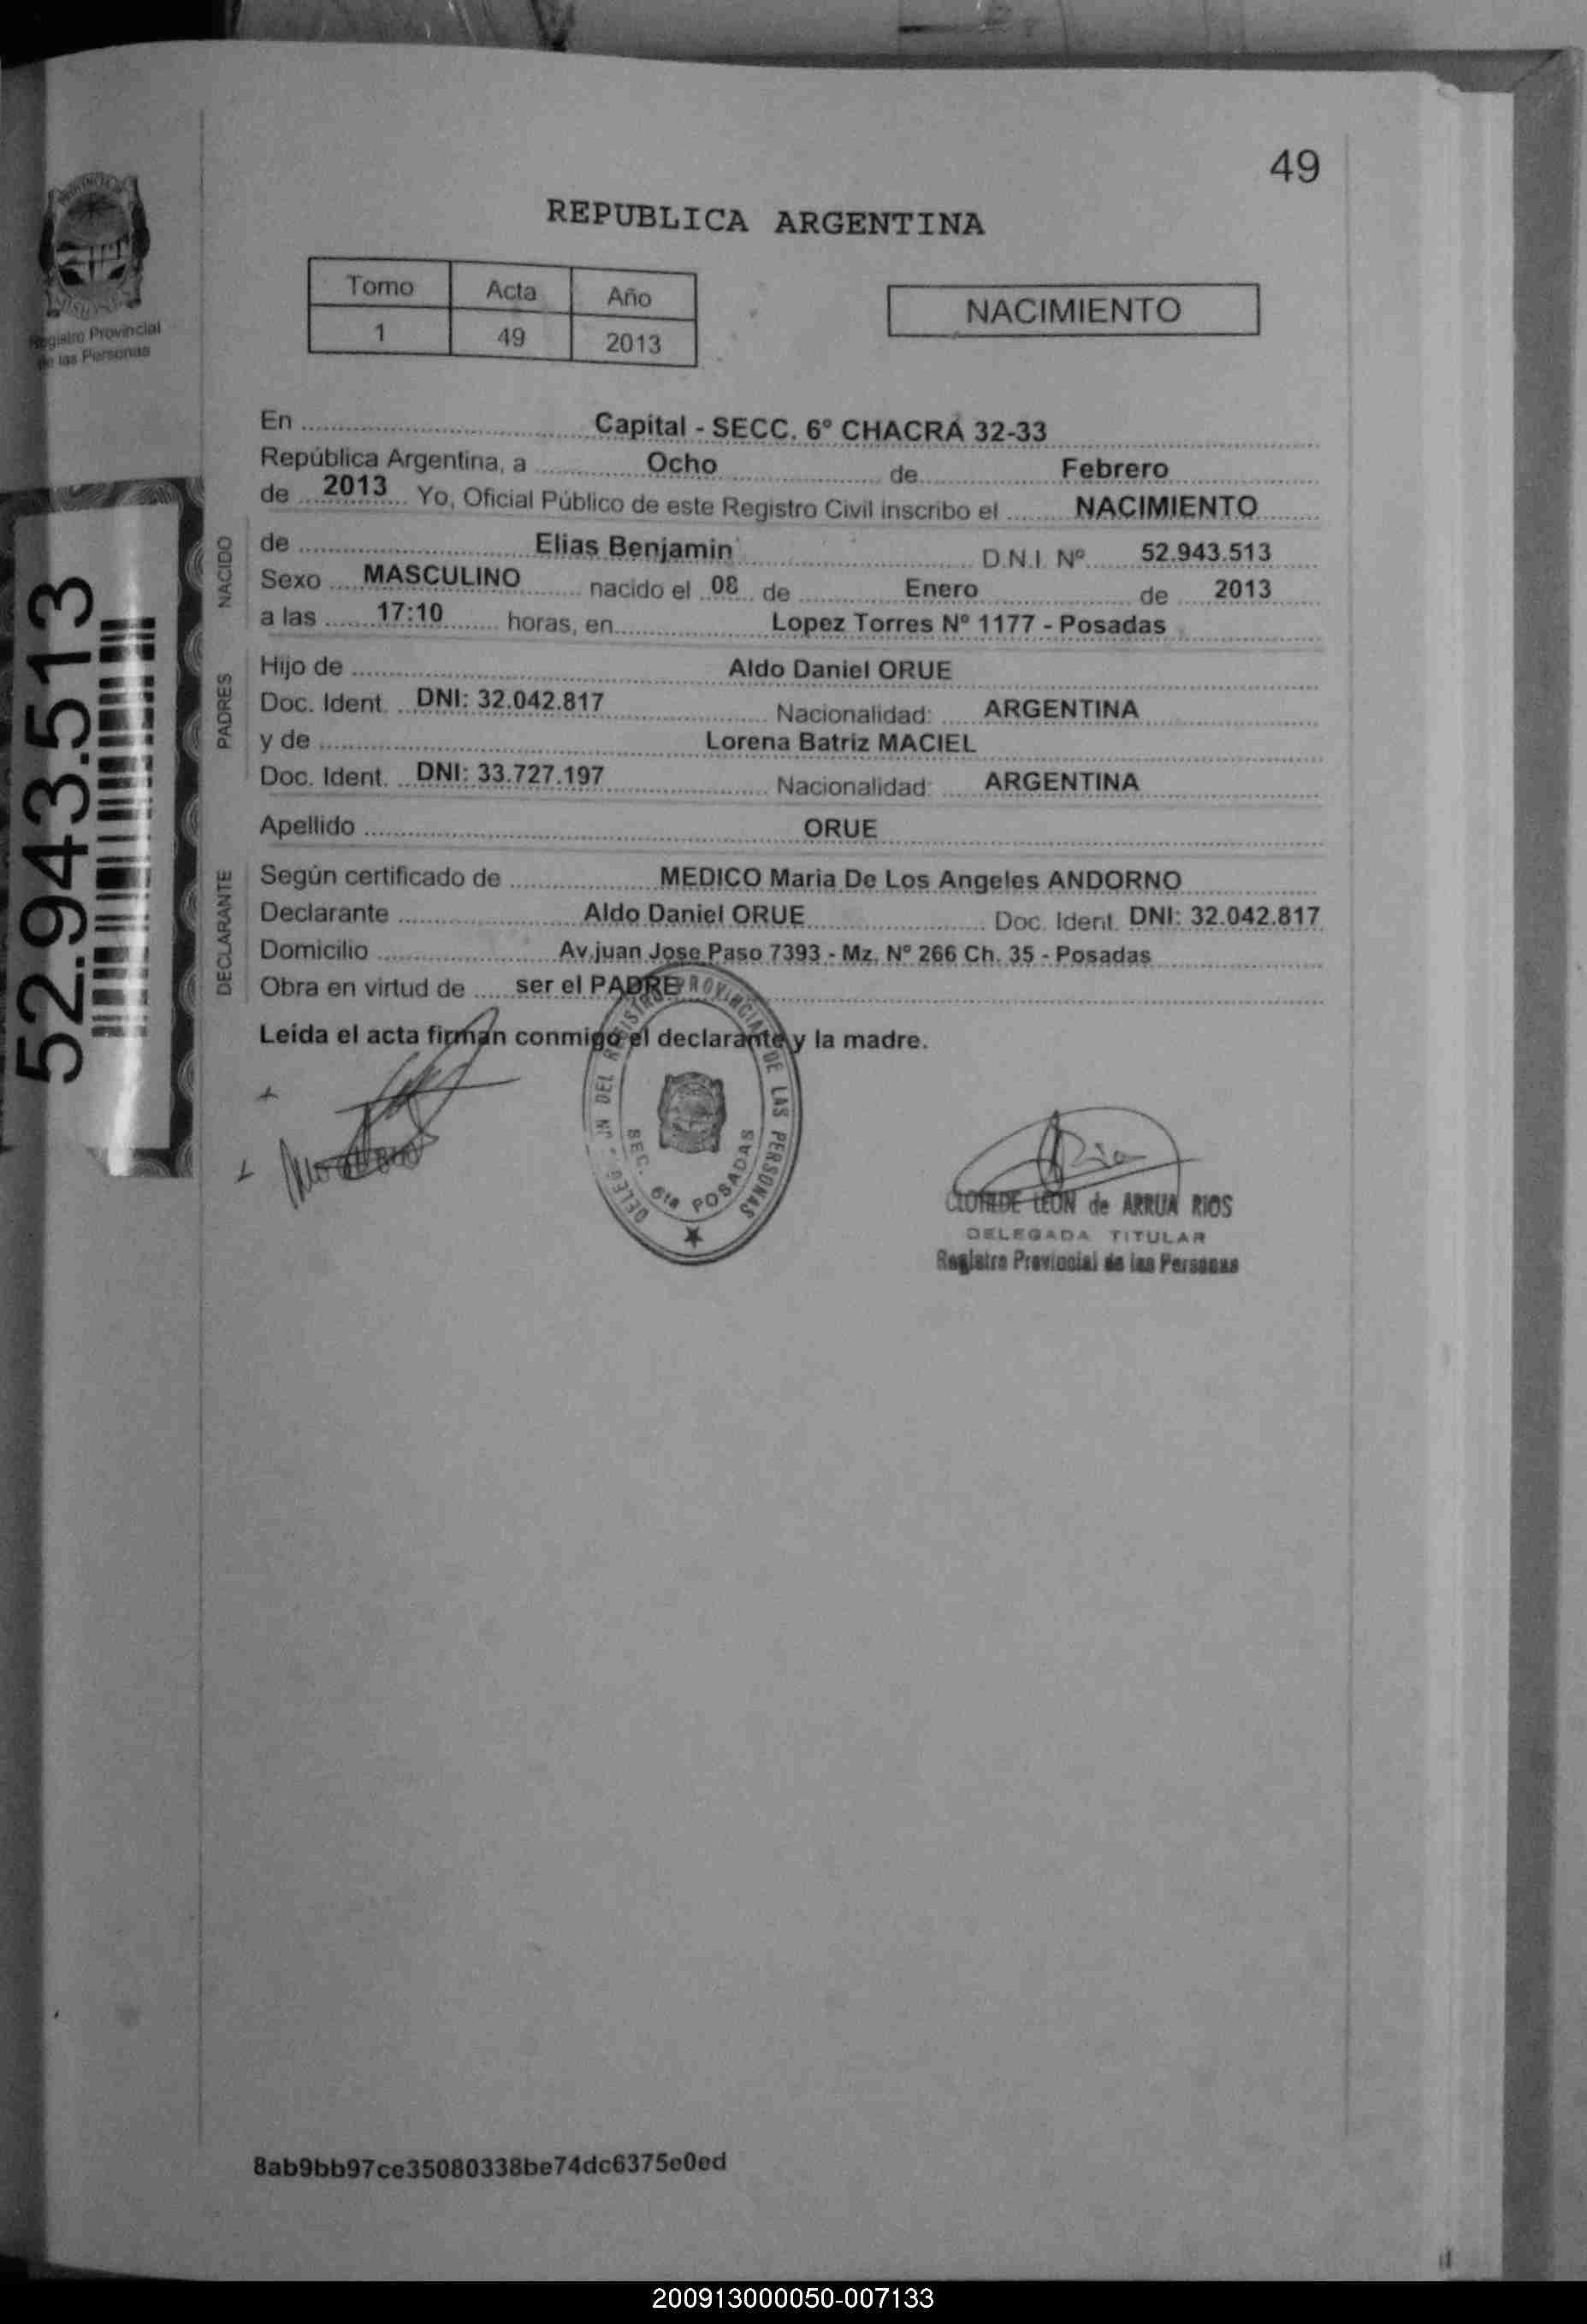 49
REPUBLICA ARGENTINA
Tomo Acta Año
1 49 2013
NACIMIENTO
Registro Provincial
de las Personas
En Capital - SECC. 6º CHACRA 32-33
República Argentina, a Ocho de Febrero
de 2013 Yo, Oficial Público de este Registro Civil inscribo el NACIMIENTO
NACIDO
de Elias Benjamin D.N.I. Nº 52.943.513
Sexo MASCULINO nacido el 08 de Enero de 2013
a las 17:10 horas, en Lopez Torres Nº 1177 - Posadas
PADRES
Hijo de Aldo Daniel ORUE
Doc. Ident. DNI: 32.042.817 Nacionalidad: ARGENTINA
y de Lorena Batriz MACIEL
Doc. Ident. DNI: 33.727.197 Nacionalidad: ARGENTINA
Apellido ORUE
DECLARANTE
Según certificado de MEDICO Maria De Los Angeles ANDORNO
Declarante Aldo Daniel ORUE Doc. Ident. DNI: 32.042.817
Domicilio Av.juan Jose Paso 7393 - Mz. Nº 266 Ch. 35 - Posadas
Obra en virtud de ser el PADRE
Leida el acta firman conmigo el declarante y la madre.
52.943.513
DELEG. Nº DEL REGISTRO PROVINCIAL DE LAS PERSONAS
SEC. 6ta POSADAS
CLOTILDE LEON de ARRUA RIOS
DELEGADA TITULAR
Registro Provincial de las Personas
8ab9bb97ce35080338be74dc6375e0ed
200913000050-007133